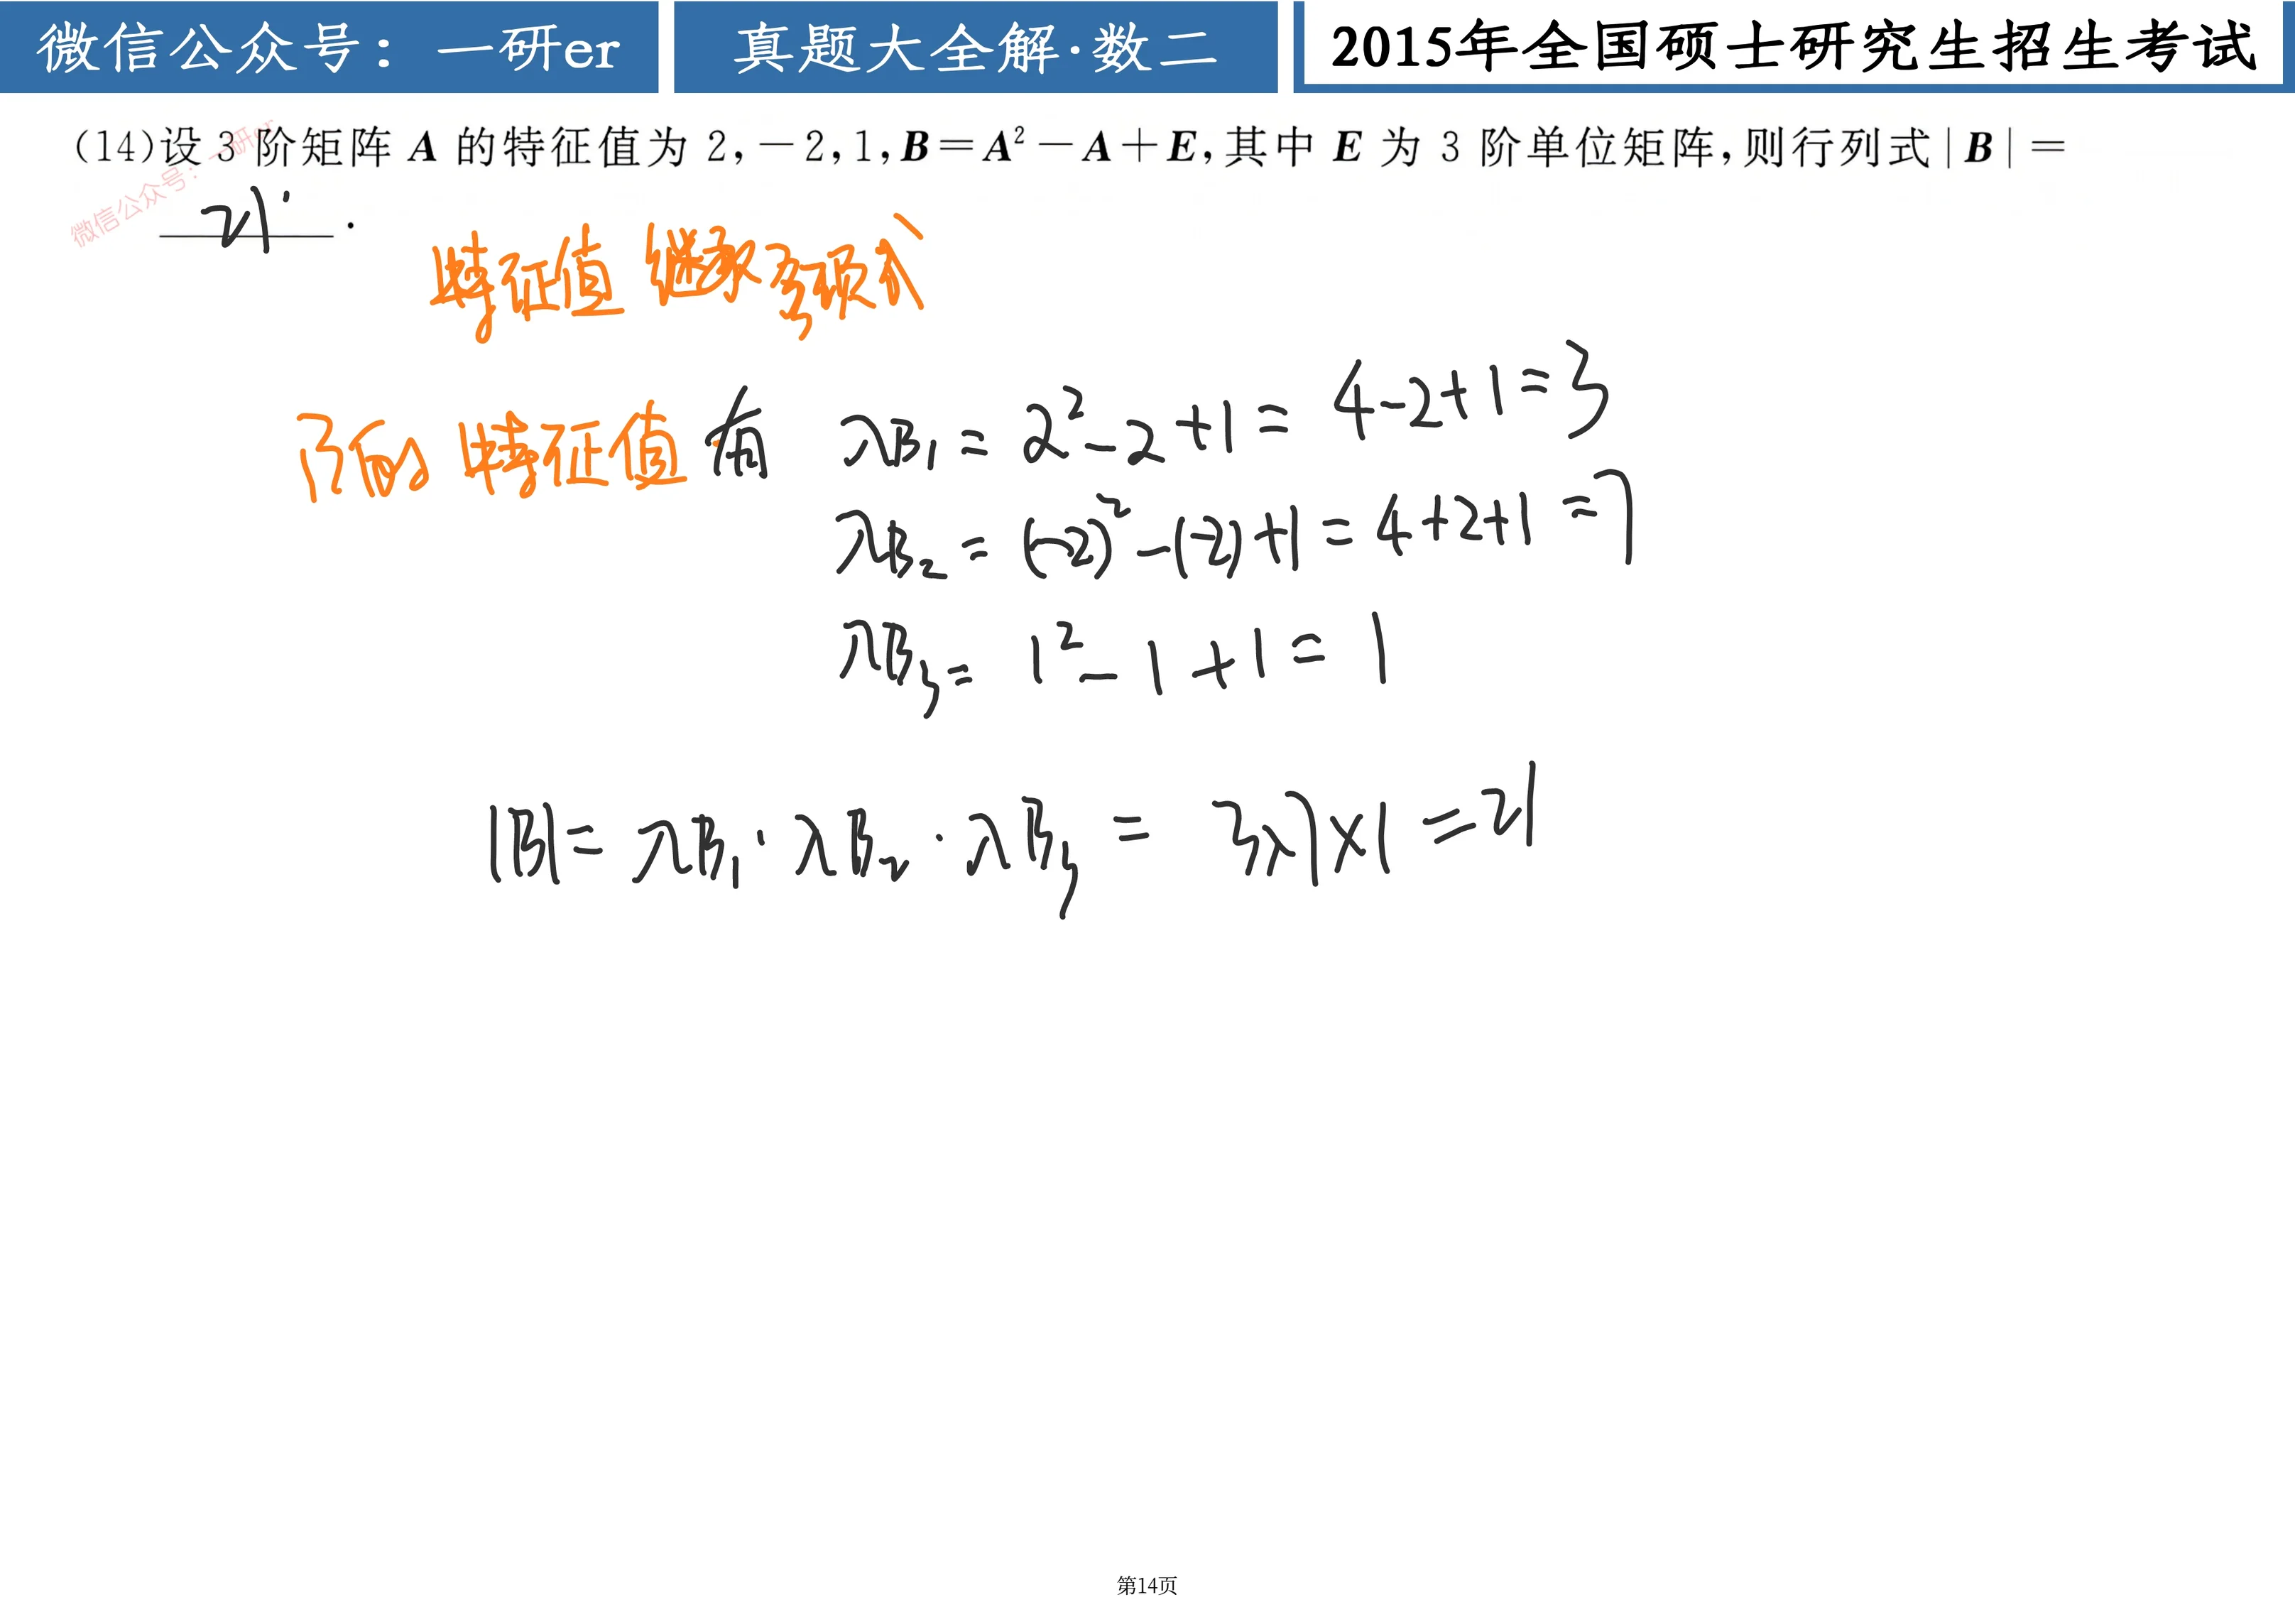 微信公众号：一研er 真题大全解·数二 2015年全国硕士研究生招生考试
(14)设 3 阶矩阵 A 的特征值为 2,−2,1,B=A²−A+E,其中 E 为 3 阶单位矩阵,则行列式|B|=
21.
微信公众号：一研er
特征值 继承多项式
B的 特征值 有 λB₁ = 2²−2+1 = 4−2+1=3
λB₂ = (−2)²−(−2)+1 = 4+2+1 =7
λB₃ = 1²−1+1 = 1
|B|= λB₁·λB₂·λB₃ = 3×7×1 =21
第14页